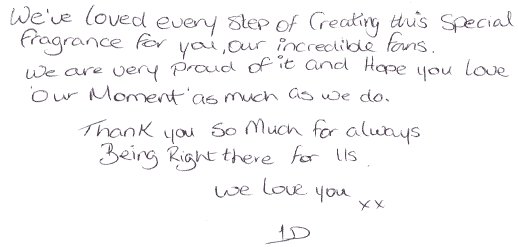 We've loved every step of Creating this Special
fragrance for you, our incredible fans.
we are very proud of it and Hope you Love
'Our Moment' as much as we do.
Thank you so Much for always
Being Right there for Us
we love you xx
1D